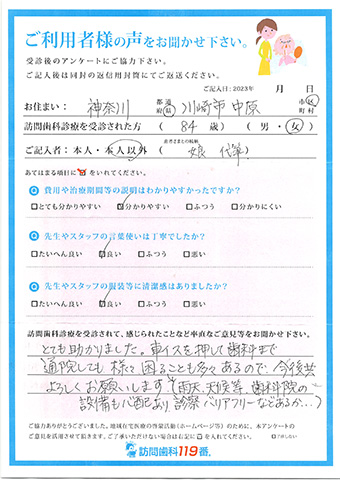 ご利用者様の声をお聞かせ下さい。
受診後のアンケートにご協力下さい。
ご記入後は同封の返信用封筒にてご返送ください。
ご記入日：2023年 月 日
お住まい： 神奈川 都道府県 川崎市中原 市区町村
訪問歯科診療を受診された方 （ 84 歳）（ 男 ・ 女 ）
ご記入者：本人・本人以外 （ 娘 代筆 ）
あてはまる項目に☑をいれてください。
Q 費用や治療期間等の説明はわかりやすかったですか？
□とても分かりやすい ☑分かりやすい □ふつう □分かりにくい
Q 先生やスタッフの言葉使いは丁寧でしたか？
□たいへん良い ☑良い □ふつう □悪い
Q 先生やスタッフの服装等に清潔感はありましたか？
□たいへん良い ☑良い □ふつう □悪い
訪問歯科診療を受診されて、感じられたことなど率直なご意見等をお聞かせ下さい。
とても助かりました。車イスを押して歯科まで
通院しても 様々 困ることも多々あるので、今後共
よろしくお願いします（雨天、天候等、歯科院の
設備も心配より、診察 バリアフリーなどあるか…）
ご協力ありがとうございました。地域在宅医療の啓蒙活動（ホームページ等）のために、本アンケートの
ご意見を活用させて頂きます。ご了承いただけない場合は右記に☑を入れてください。 □了承しない
訪問歯科119番。